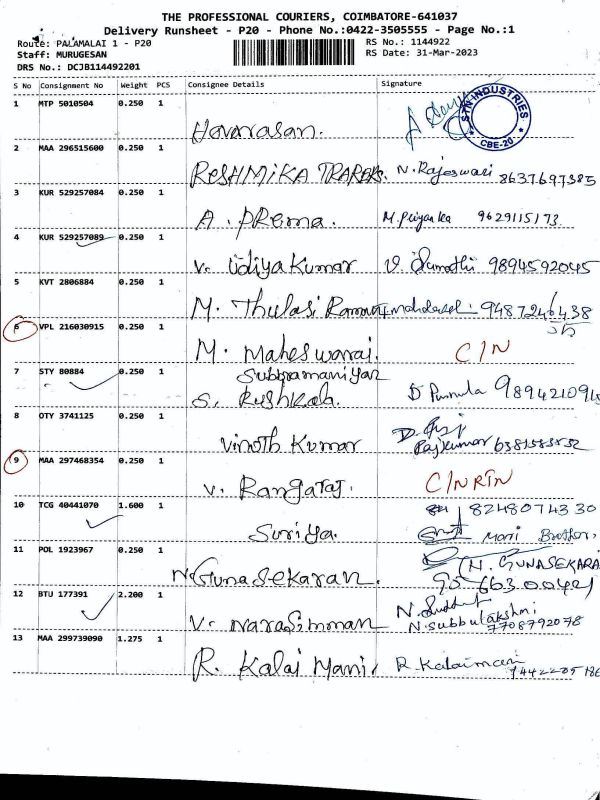 THE PROFESSIONAL COURIERS, COIMBATORE-641037
Delivery Runsheet - P20 - Phone No.:0422-3505555 - Page No.:1
Route: PALAMALAI 1 - P20
RS No.: 1144922
Staff: MURUGESAN
RS Date: 31-Mar-2023
DRS No.: DCJB114492201
S No Consignment No Weight PCS Consignee Details Signature
1 MTP 5010504 0.250 1
STN INDUSTRIES
* CBE-20 *
2 MAA 296515600 0.250 1
RESHMIKA N. Rajeswari 8637697385
3 KUR 529257084 0.250 1
A. PRema. M. Priyanka 9629115173
4 KUR 529257089 0.250 1
V. UdiyaKumar V. Sumathi 9894592045
5 KVT 2806884 0.250 1
M. Thulasi Raman
6 VPL 216030915 0.250 1
M. Maheswarai. C/N
7 STY 80884 0.250 1
Subbramaniyan
S. Pushkala.
8 OTY 3741125 0.250 1
Vinoth Kumar
Rajkumar
9 MAA 297468354 0.250 1
V. Rangaraj. C/NRTN
10 TCG 40441070 1.600 1
8248074330
Suriya. Mani Brother.
11 POL 1923967 0.250 1
N. GUNASEKARA
N Gunasekaran.
12 BTU 177391 2.200 1
V. Narasimman N. Subbulakshmi
7708792078
13 MAA 299739090 1.275 1
R. Kalai Mani. R. Kalaimani